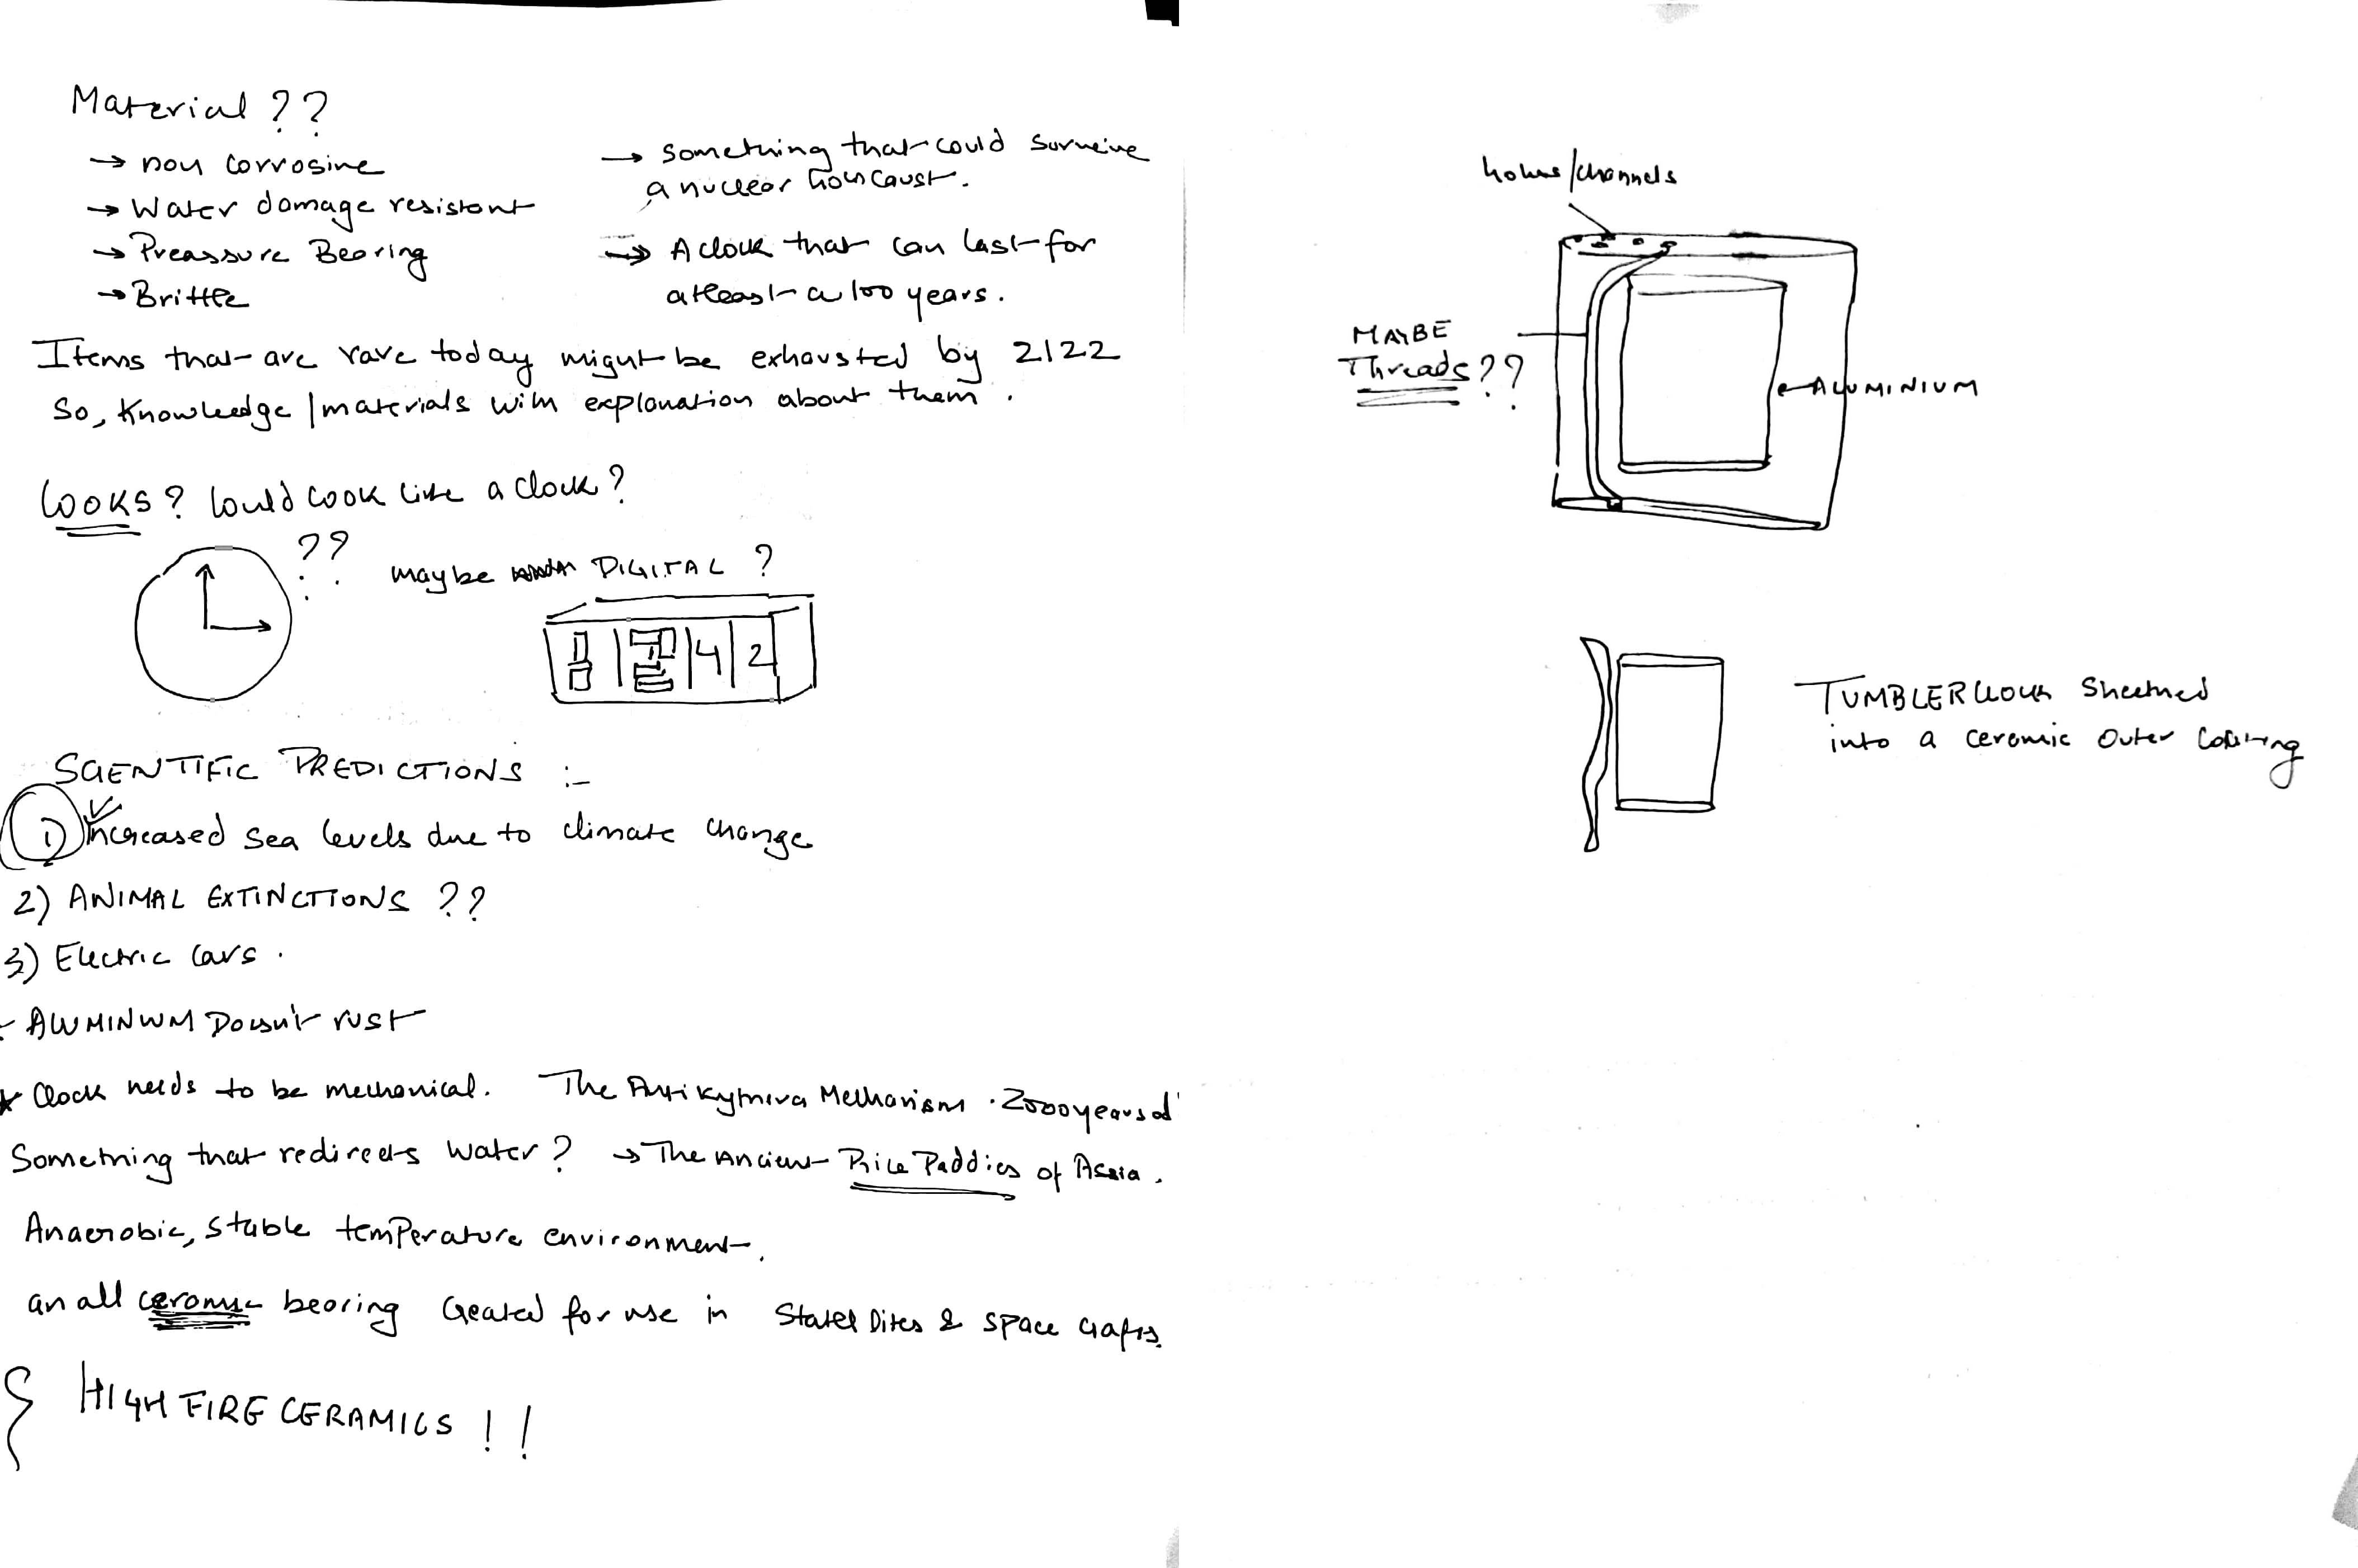 Material ??
→ non corrosive
→ Water damage resistant
→ Preassure Bearing
→ Brittle
→ something that could survive
a nuclear holocaust.
→ A clock that can last for
atleast a 100 years.
Items that are rare today might be exhausted by 2122
So, Knowledge / materials with explanation about them.
LOOKS? Could look like a clock?
??
maybe DIGITAL ?
8 2 4 2
SCIENTIFIC PREDICTIONS :-
1) Increased sea levels due to climate change
2) ANIMAL EXTINCTIONS ??
3) Electric Cars.
- ALUMINIUM Doesn't rust
* Clock needs to be mechanical. The Antikythera Mechanism. 2000 years ol
Something that redirects water? → The Ancient Rice Paddies of Asia.
Anaerobic, stable temperature environment.
an all ceramic bearing created for use in & space crafts.
{ HIGH FIRE CERAMICS !!
holes/channels
MAYBE
Threads??
ALUMINIUM
TUMBLER clock Sheathed
into a ceramic Outer